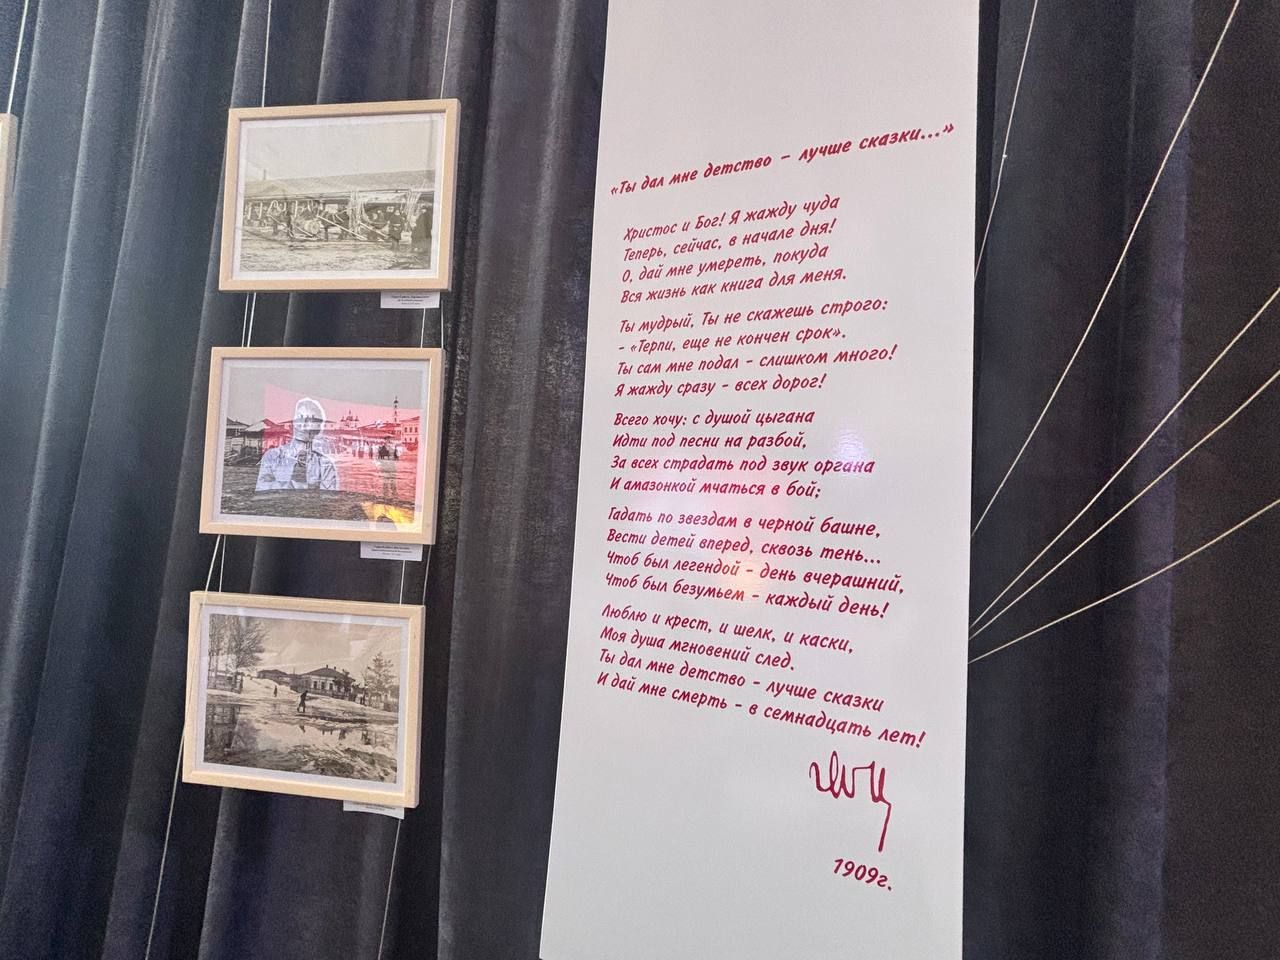 «Ты дал мне детство – лучше сказки...»
Христос и Бог! Я жажду чуда
Теперь, сейчас, в начале дня!
О, дай мне умереть, покуда
Вся жизнь как книга для меня.
Ты мудрый, Ты не скажешь строго:
- «Терпи, еще не кончен срок».
Ты сам мне подал – слишком много!
Я жажду сразу – всех дорог!
Всего хочу: с душой цыгана
Идти под песни на разбой,
За всех страдать под звук органа
И амазонкой мчаться в бой;
Гадать по звездам в черной башне,
Вести детей вперед, сквозь тень...
Чтоб был легендой – день вчерашний,
Чтоб был безумьем – каждый день!
Люблю и крест, и шелк, и каски,
Моя душа мгновений след.
Ты дал мне детство – лучше сказки
И дай мне смерть – в семнадцать лет!
1909г.